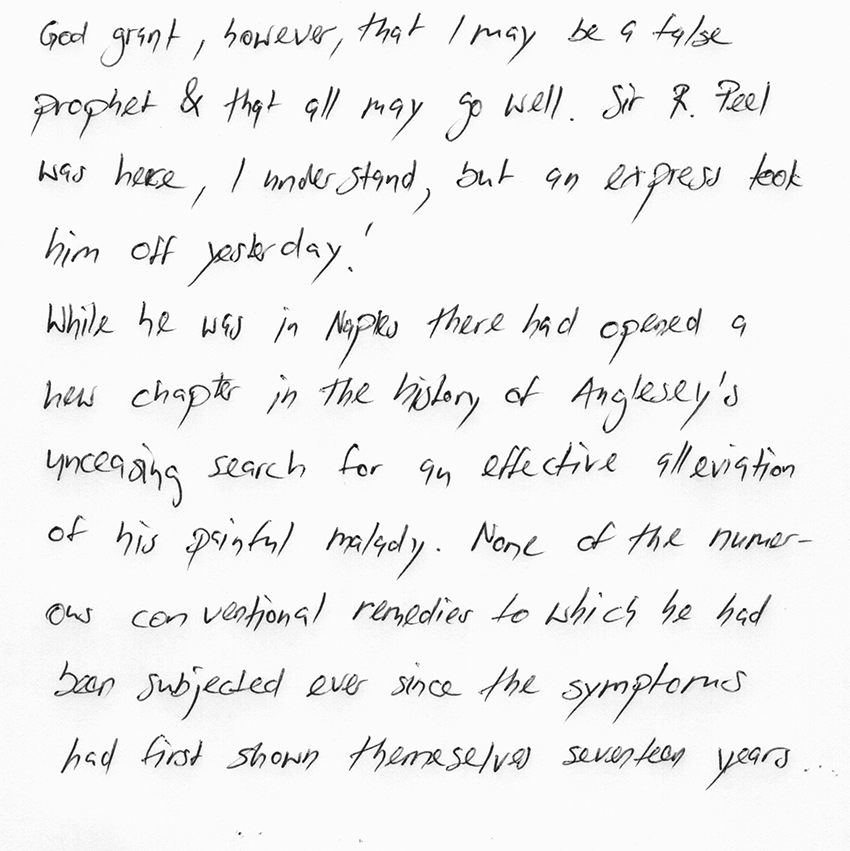 God grant, however, that I may be a false
prophet & that all may go well. Sir R. Peel
was here, I understand, but an express took
him off yesterday.'
While he was in Naples there had opened a
new chapter in the history of Anglesey's
unceasing search for an effective alleviation
of his painful malady. None of the numer-
ous conventional remedies to which he had
been subjected ever since the symptoms
had first shown themeselves seventeen years...